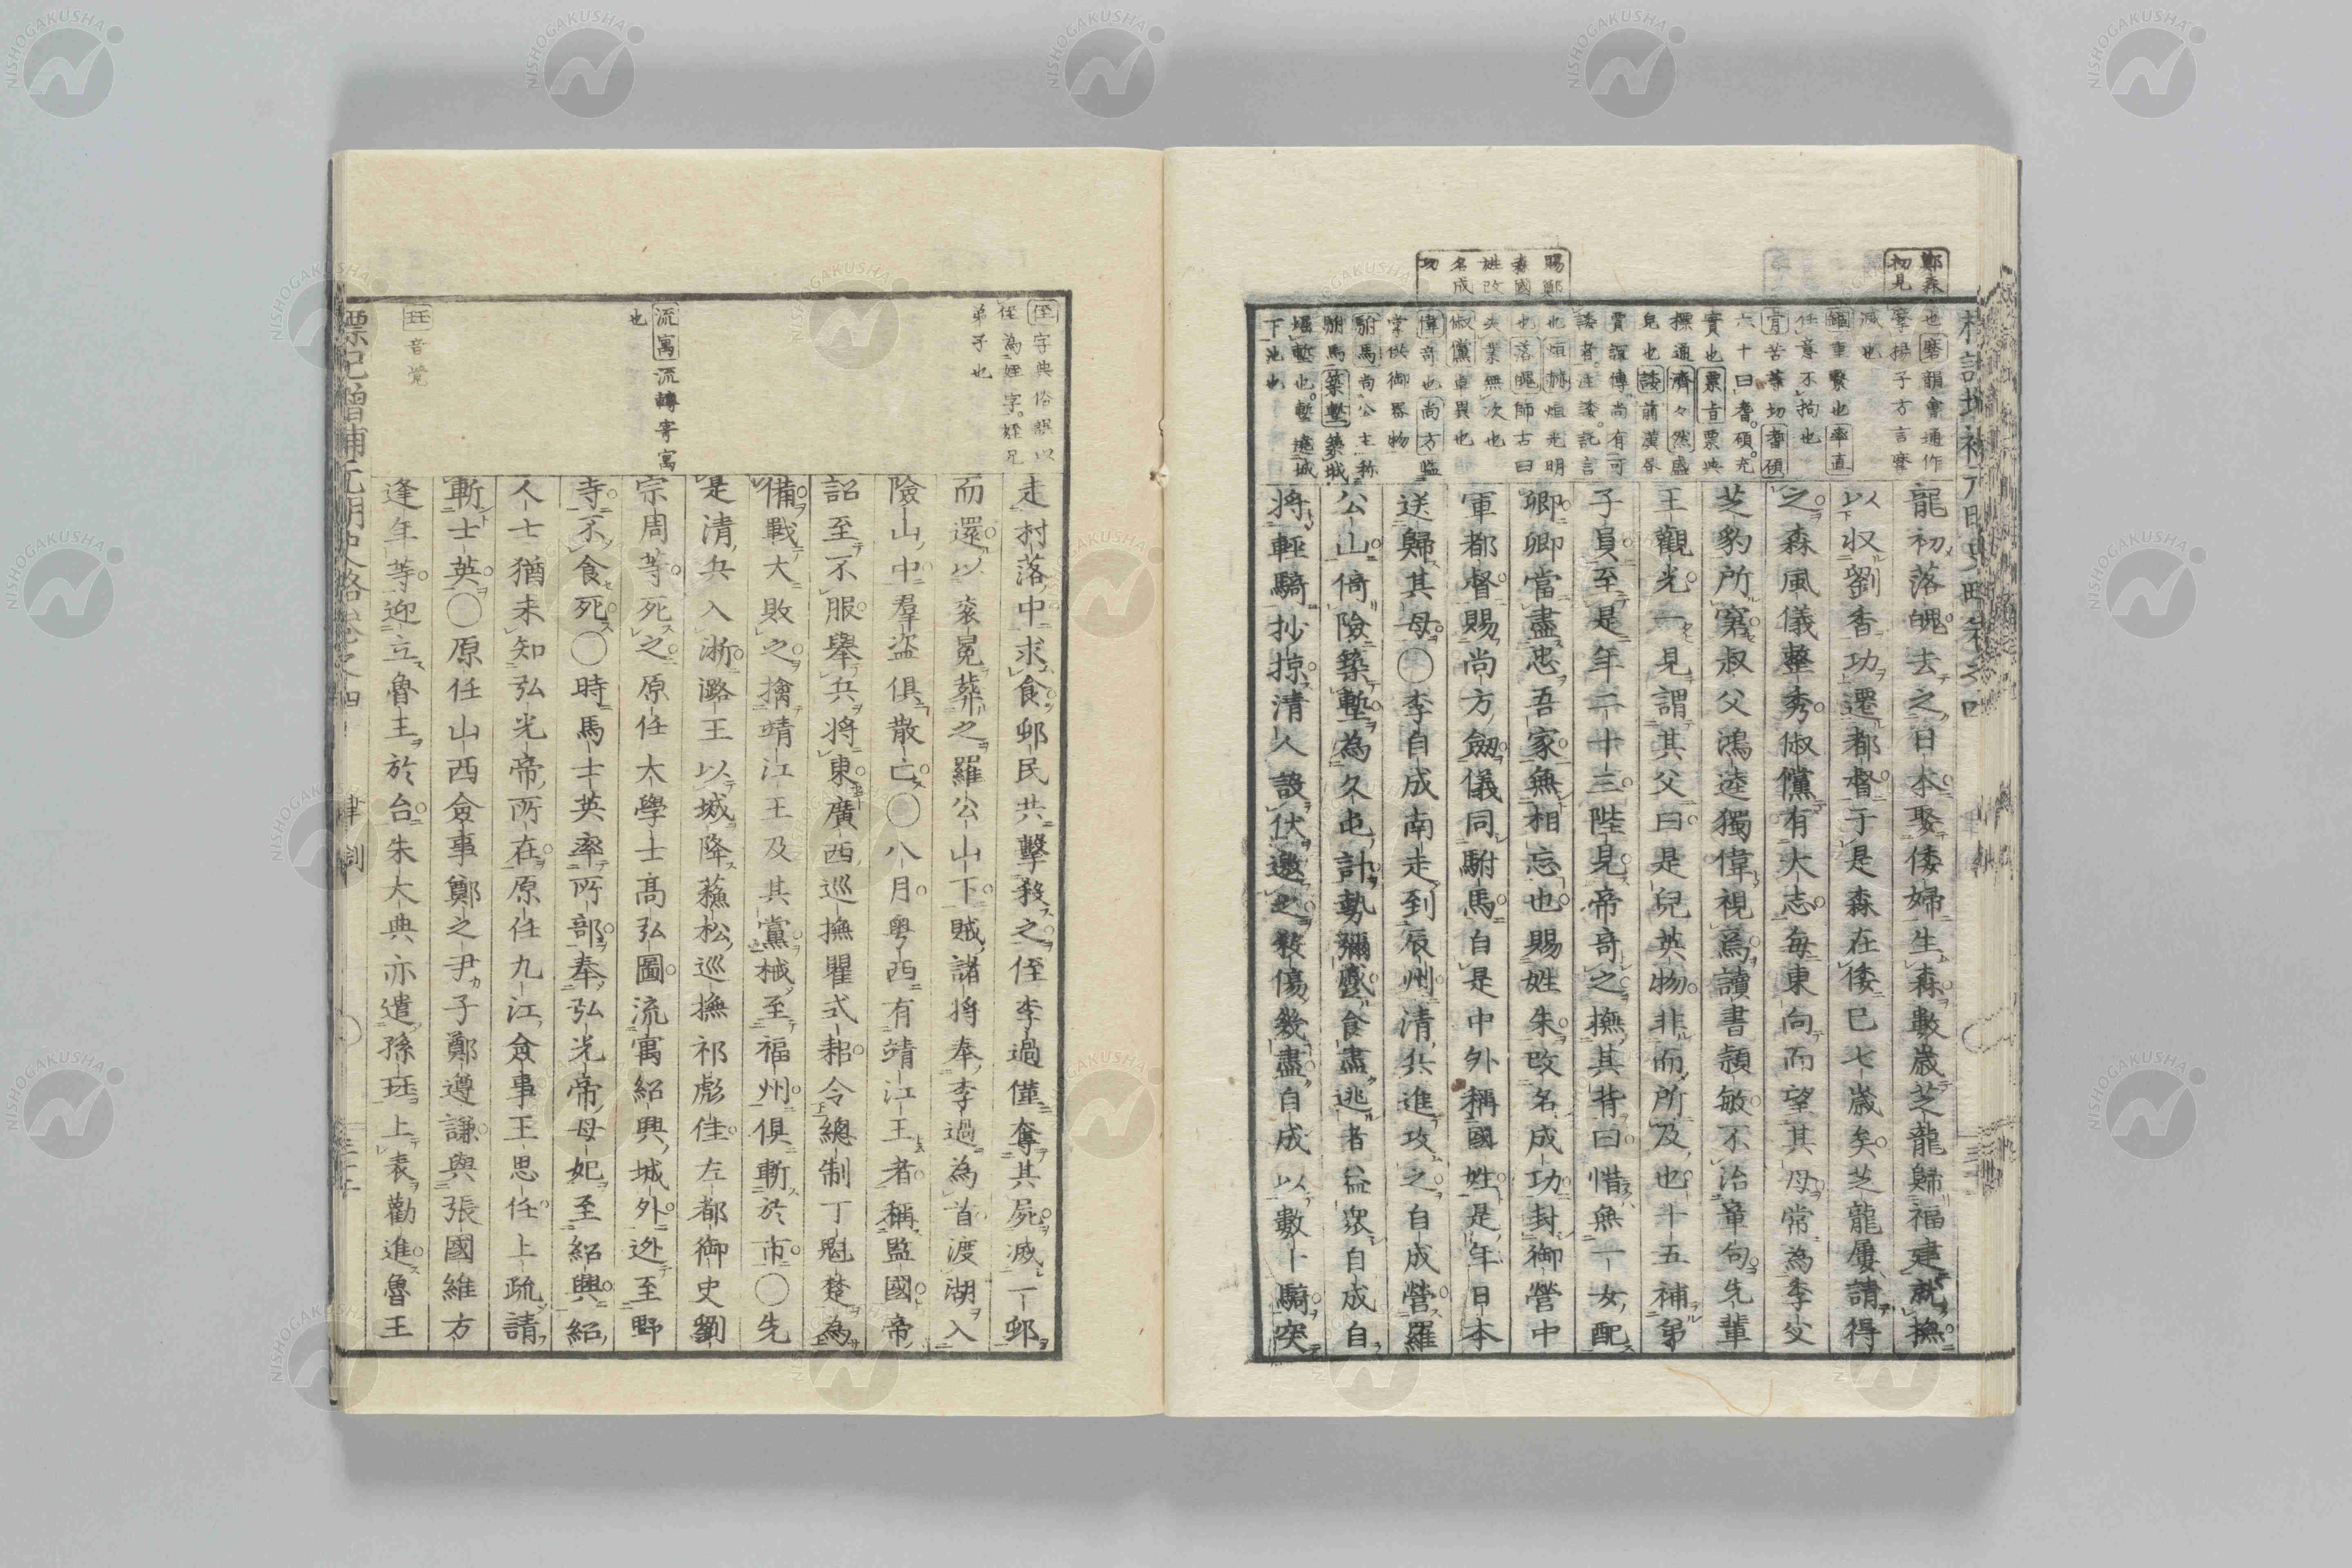 鄭森
初見
賜鄭
森國
姓改
名成
功
也磨韻會通作
摩揚子方言摩
滅也
任意不拘也
六十曰耆碩充
實也票旨票典
標通濟々然盛
皃也談前漢書
賈誼傳尚有可
諉者注諉託言
也煌煌光明
也落魄師古曰
失業無次也
俶儻卓異也
偉奇也尚方監
掌供御器物
駙馬尚公主称
駙馬築塹築城
堀塹也塹遶城
下池也
龍初落魄去之日本娶倭婦生森數歳芝龍歸福建就撫
以収劉香功遷都督于是森在倭已七歳矣芝龍屢請得
之森風儀整秀俶儻有大志毎東向而望其母常為季父
芝豹所窘叔父鴻逵獨偉視焉讀書穎敏不治章句先輩
王觀光一見謂其父曰是兒英物非而所及也十五補弟
子員至是年二十三陛見帝奇之撫其背曰惜無一女配
卿卿當盡忠吾家無相忘也賜姓朱改名成功封御營中
軍都督賜尚方劔儀同駙馬自是中外稱國姓是年日本
送歸其母〇李自成南走到辰州清兵進攻之自成營羅
公山倚險築塹為久屯計勢彌蹙食盡逃者益衆自成自
將輕騎抄掠清人設伏邀之殺傷幾盡自成以數十騎突
侄字典俗誤以
侄為姪字姪兄
弟子也
流寓流轉寄寓
也
玨音覚
走村落中求食邨民共擊殺之侄李過僅奪其屍滅一邨
而還以衮冕葬之羅公山下賊諸将奉李過為首渡湖入
險山中羣盗俱散亡〇八月粤西有靖江王者稱監國帝
詔至不服舉兵將東廣西巡撫瞿式耜令總制丁魁楚為
備戰大敗之擒靖江王及其黨械至福州俱斬於市〇先
是清兵入浙潞王以城降蘓松巡撫祁彪佳左都御史劉
宗周等死之原任大學士高弘圖流寓紹興城外迯至野
寺不食死〇時馬士英率所部奉弘光帝母妃至紹興紹
人士猶未知弘光帝所在原任九江僉事王思任上疏請
斬士英〇原任山西僉事鄭之尹子鄭遵謙與張國維方
逢年等迎立魯王於台朱大典亦遣孫玨上表勸進魯王
標記増補元明史略巻之四